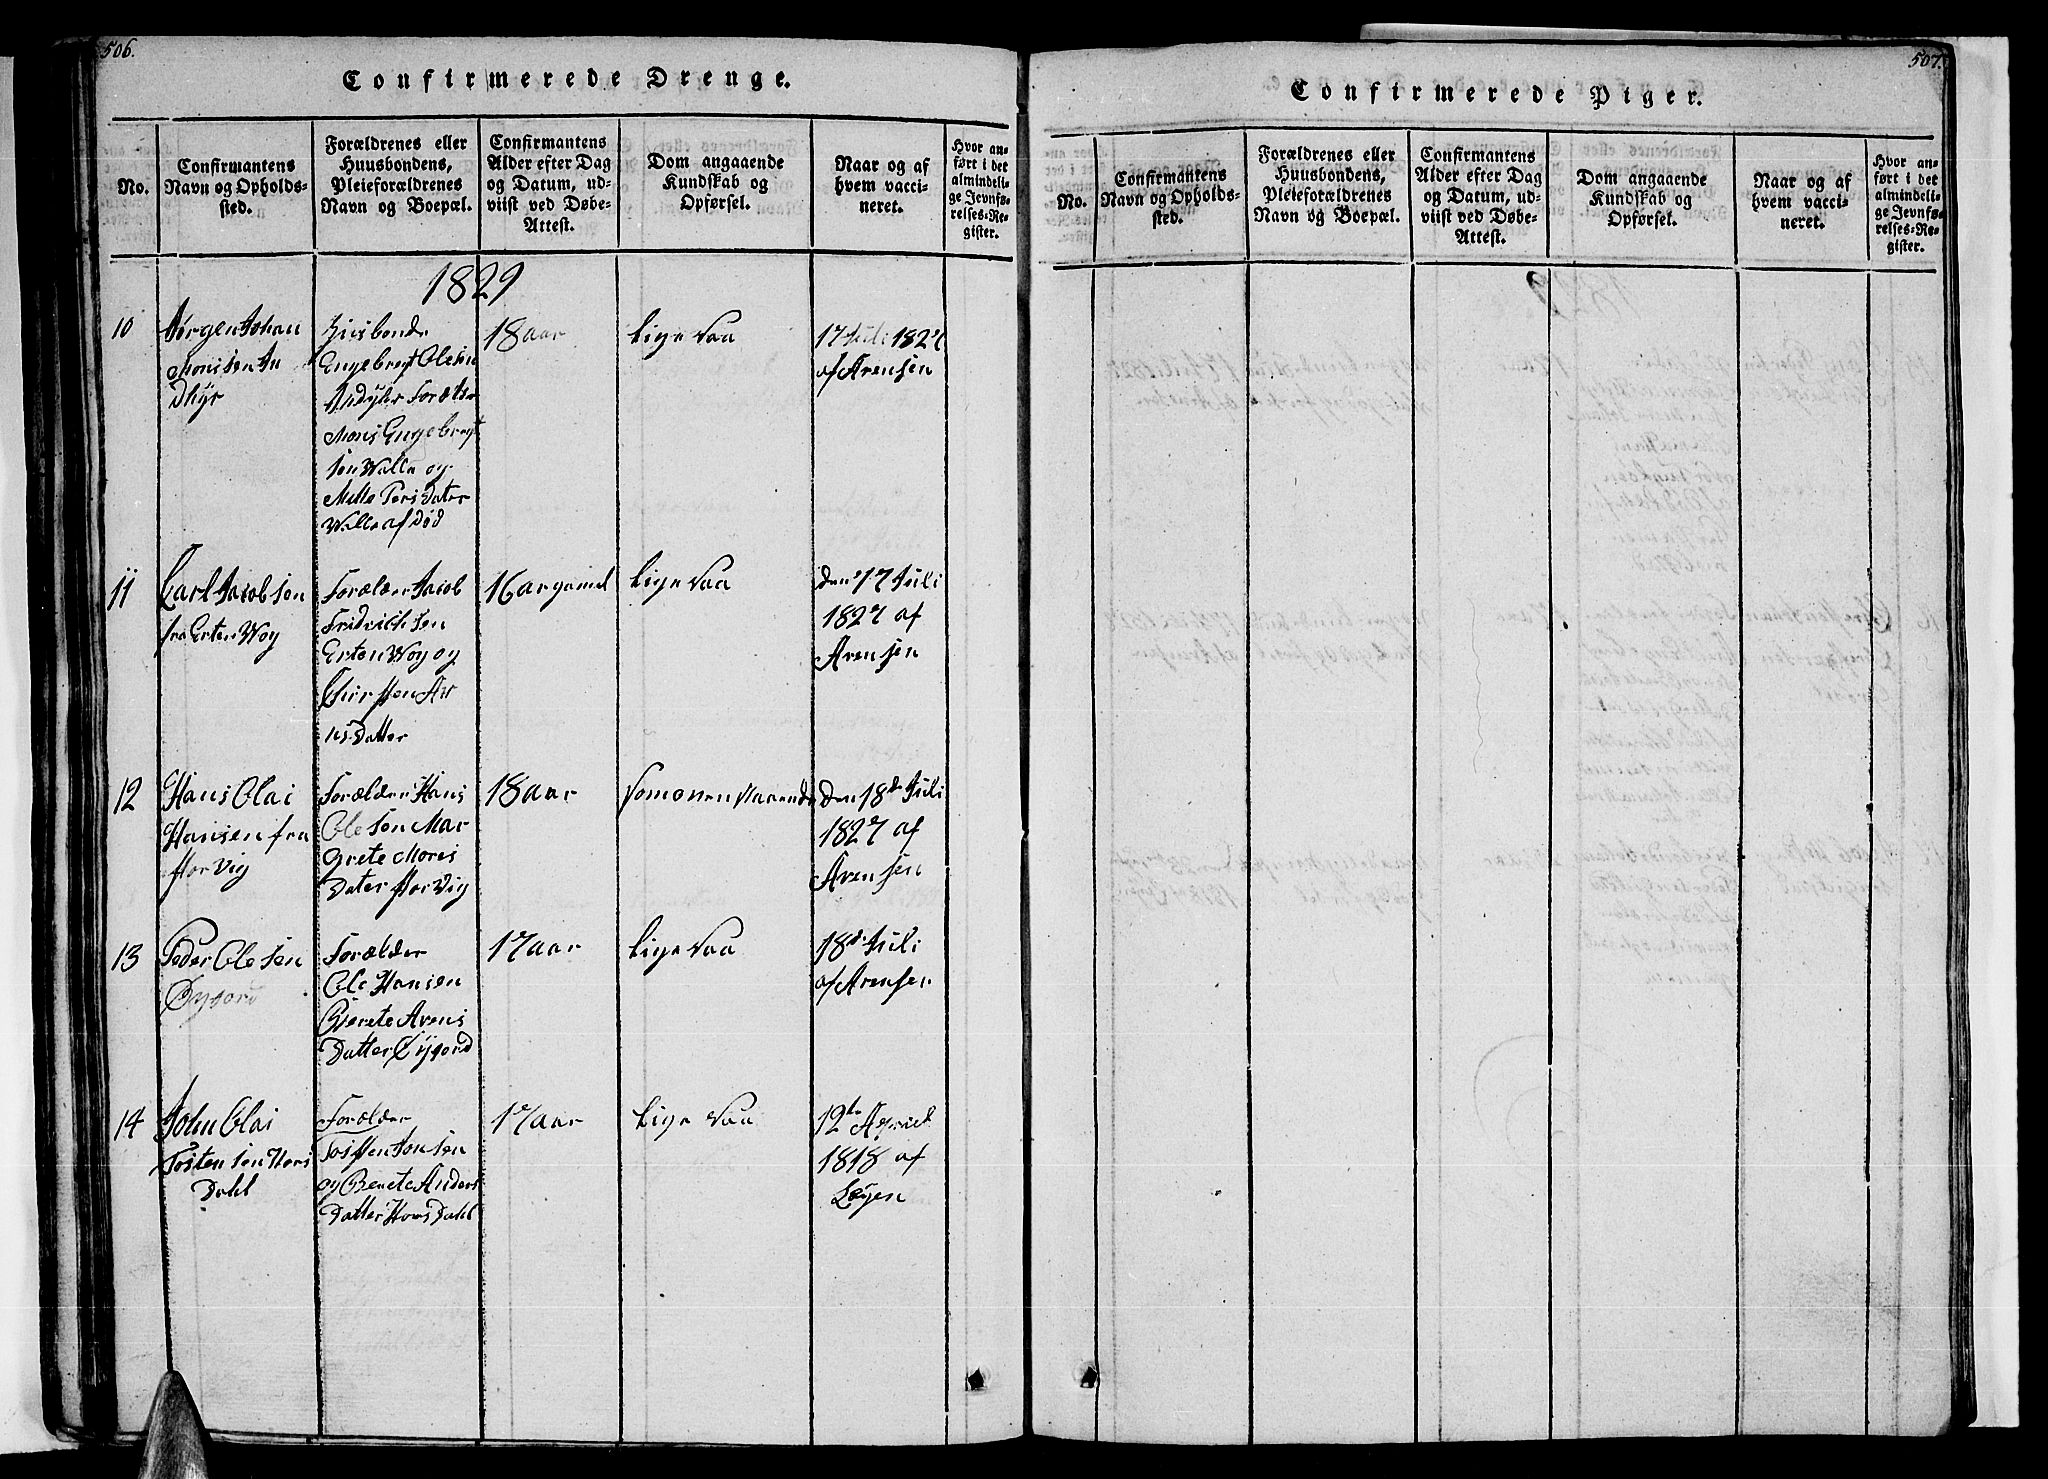 506.
Confirmerede Drenge.
No.
Confirmantens
Navn og Opholds-
sted.
Forældrenes eller
Huusbondens,
Pleieforældrenes
Navn og Boepæl.
Confirmantens
Alder efter Dag
og Datum, ud-
viist ved Døbe-
Attest.
Dom angaaende
Kundskab og
Opførsel.
Naar og af
hvem vacci-
neret.
Hvor an-
ført i det
almindeli-
ge Jevnfø-
relses-Re-
gister.
1829
10
Jørgen Johan
Monssen In
Dhyr
Huusbonde
Engebregt Olesen
Indyhr Forældre
Mons Engebregt
sen Valle og
Mette Pers Dater
Valle af Død
18 aar
Lige saa
17 Juli 1827
af Arensen
11
Carl Jacobsen
fra Erten Vog
Forælder Jacob
Fridrichsen
Erten Vog og
Chirsten Ar
ns Datter
16 ar gamel
Lige saa
den 17 Juli
1827 af
Arensen
12
Hans Olai
Hansen fra
Horvig
Forælder Hans
Olesen Mar
grete Mons
Dater Horvig
18 aar
Som ovenstaaende
den 18de Juli
1827 af
Arensen
13
Peder Olesen
Øygord
Forælder
Ole Hansen
Berete Arens
Datter Øygord
17 aar
Lige saa
18de Juli
af Arensen
14
John Olai
Tostensen Hors
Dahl
Forælder
Tosten Jonsen
og Berete Anders
Datter Hors Dahl
17 aar
Lige saa
12te April
1818 af
Løgen
507.
Confirmerede Piger.
No.
Confirmantens
Navn og Opholds-
sted.
Forældrenes eller
Huusbondens,
Pleieforældrenes
Navn og Boepæl.
Confirmantens
Alder efter Dag
og Datum, ud-
viist ved Døbe-
Attest.
Dom angaaende
Kundskab og
Opførsel.
Naar og af
hvem vacci-
neret.
Hvor an-
ført i det
almindeli-
ge Jevnfø-
relses-Re-
gister.